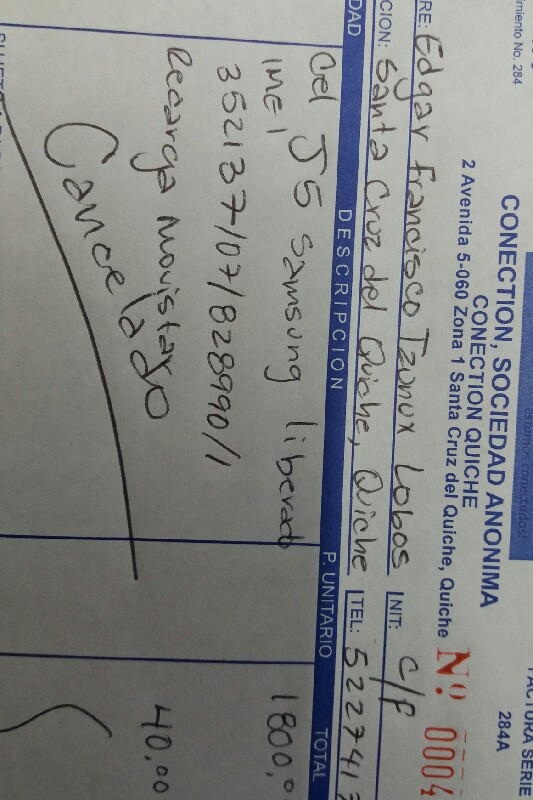 estamos conectados!
FACTURA SERIE
imiento No. 284
284A
CONECTION, SOCIEDAD ANONIMA
CONECTION QUICHE
2 Avenida 5-060 Zona 1 Santa Cruz del Quiche, Quiche
Nº 0004
RE: Edgar Francisco Tzunux Lobos NIT: C/F
CION: Santa Cruz del Quiche, Quiche TEL: 5227417
DAD DESCRIPCION P. UNITARIO TOTAL
Cel J5 samsung liberado 1800,0
IMEI
352137/07/828990/1
Recarga movistar 40.00
Cancelado